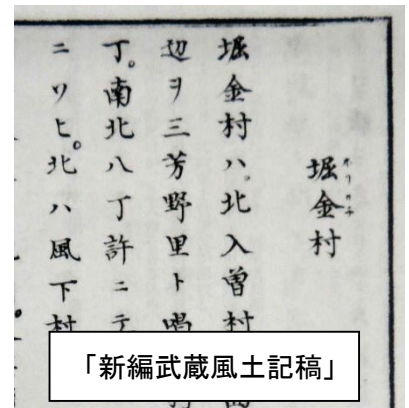 堀金村
堀金村ハ北入曽村
辺ヲ三芳野里ト唱
丁。南北八丁許ニテ
ニソヒ。北ハ風下村
「新編武蔵風土記稿」